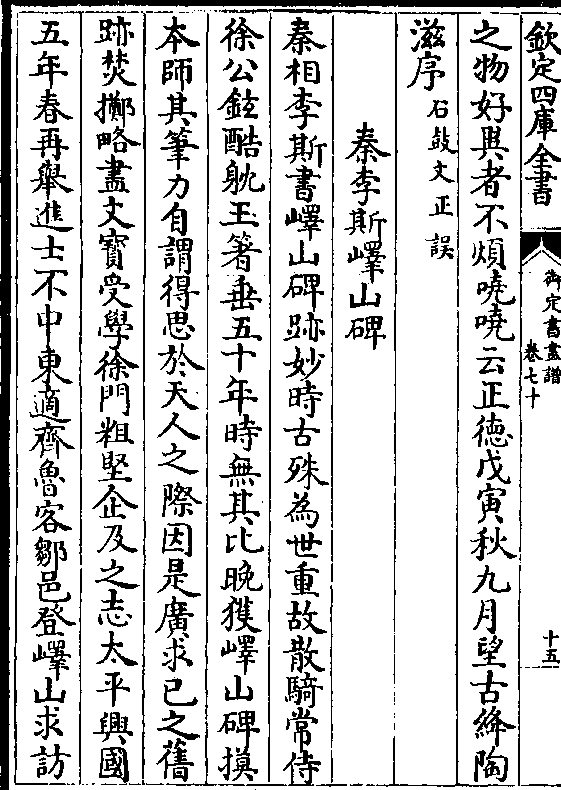 欽定四庫全書
御定書畫譜
卷七十
十五
之物好異者不煩嘵嘵云正德戊寅秋九月望古絳陶
滋序石鼓文正誤
秦李斯嶧山碑
秦相李斯書嶧山碑跡妙時古殊為世重故散騎常侍
徐公鉉酷躭玉箸垂五十年時無其比晚獲嶧山碑摸
本師其筆力自謂得思於天人之際因是廣求己之舊
跡焚擲略盡文寶受學徐門粗堅企及之志太平興國
五年春再舉進士不中東適齊魯客鄒邑登嶧山求訪